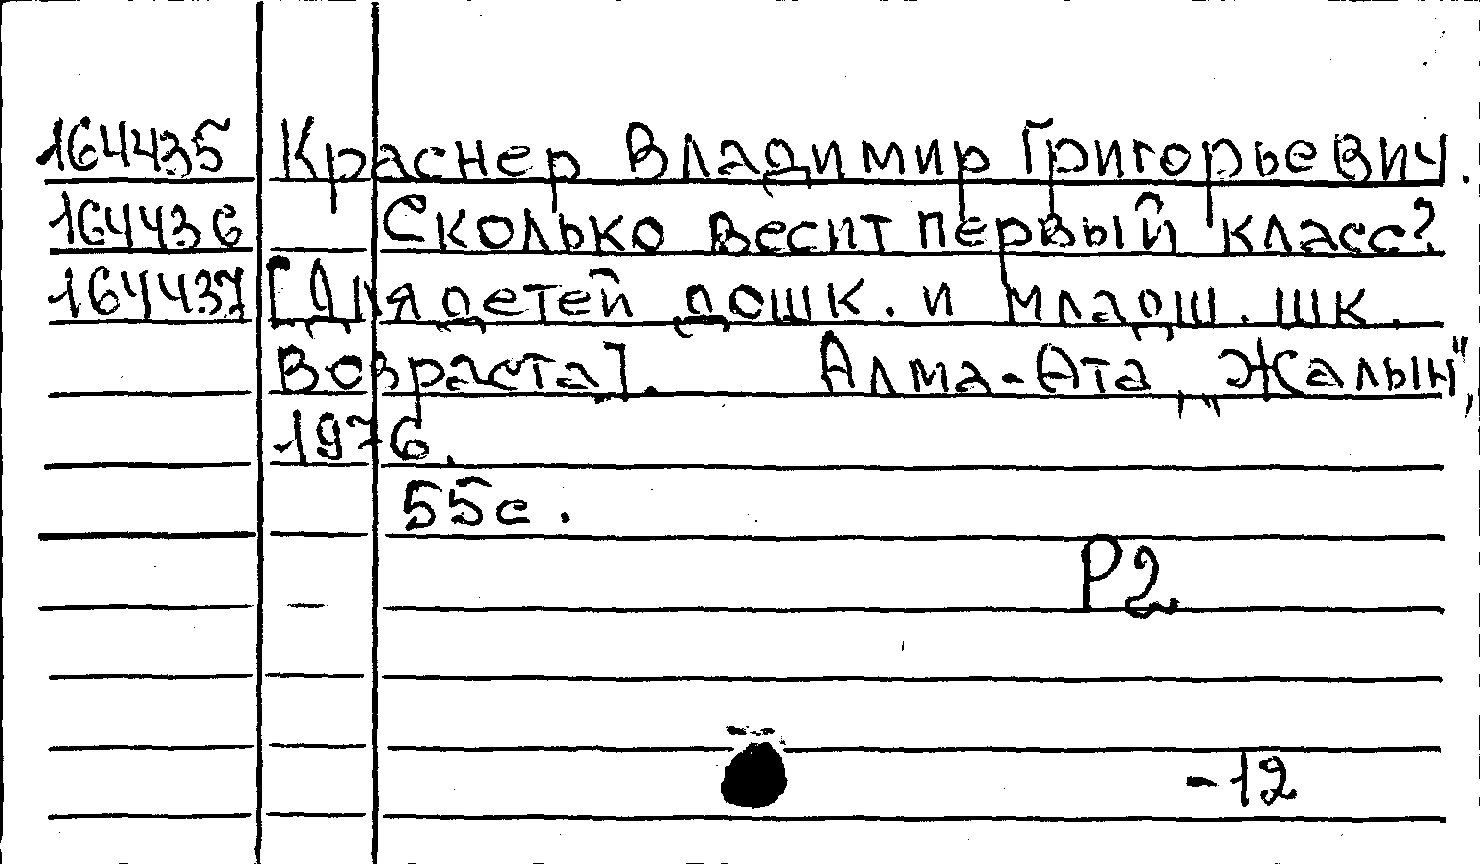 164435 Краснер Владимир Григорьевич.
164436 Сколько весит первый класс?
164437 [Для детей дошк. и младш. шк.
возраста]. Алма-Ата, „Жалын",
1976.
55с.
Р2
-12